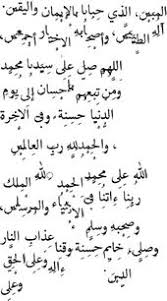 المبين، الذي حبانا بالإيمان واليقين.
آله الطيبين، وأصحابه الأخيار أجمعين،
اللهم صل على سيدنا محمد
ومن تبعهم بإحسان إلى يوم
الدنيا حسنة وفي الآخرة
، والحمد لله رب العالمين
الله على محمد الحمد لله الملك
ربنا ءاتنا في الأنبياء والمرسلين،
وصحبه وسلم
وصلى خاتم حسنة وقنا عذاب النار
الله وعلى الحق
النبيين
وعلى